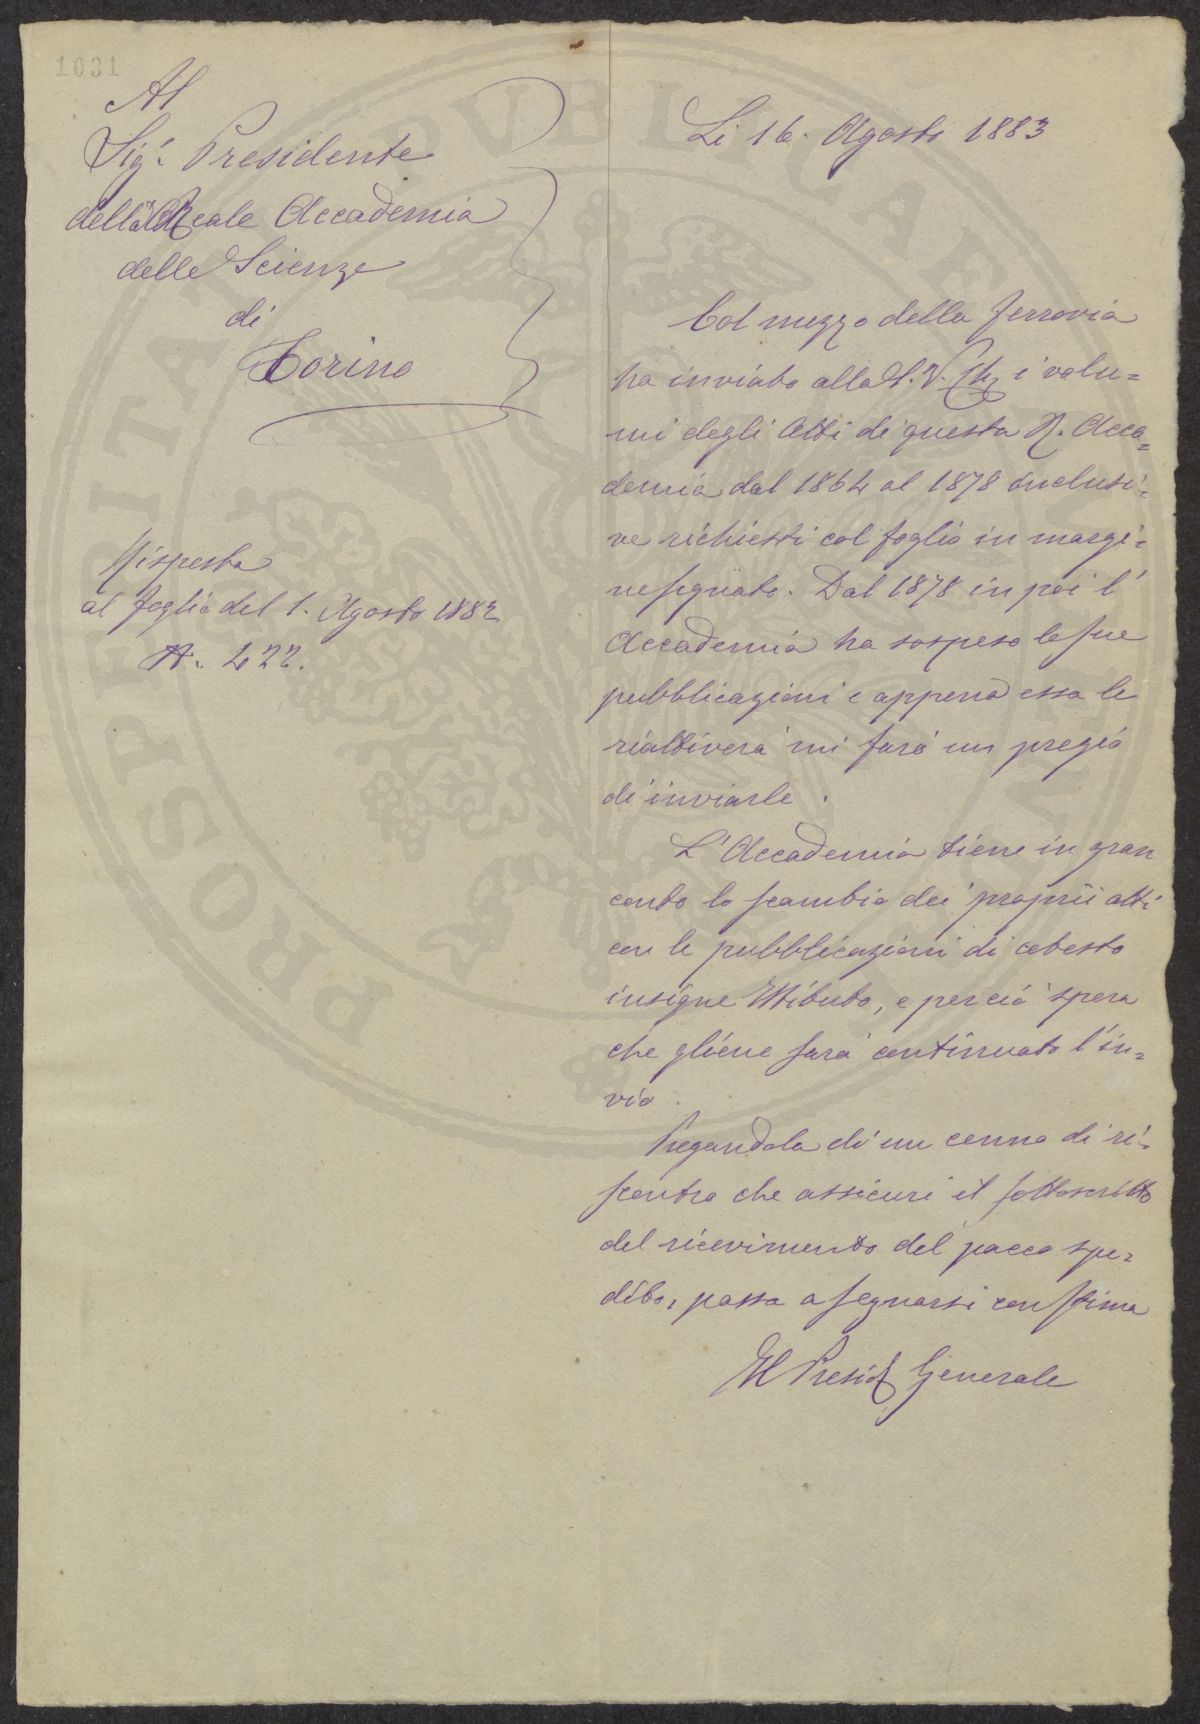 1031
Al
Sig.r Presidente
della Reale Accademia
delle Scienze
di
Torino
Risposta
al foglio del 1. Agosto 1882
N. 422.
Li 16. Agosto 1883
Col mezzo della ferrovia
ha inviato alla S. V. Ch. i volu=
mi degli Atti di questa R. Acca=
demia dal 1864 al 1878 inclusi=
ve richiesti col foglio in margi=
ne segnato. Dal 1878 in poi l'
Accademia ha sospeso le sue
pubblicazioni e appena essa le
riattiverà mi farò un pregio
di inviarle.
L'Accademia tiene in gran
conto lo scambio dei proprii atti
con le pubblicazioni di cotesto
insigne Istituto, e perciò spera
che gliene sarà continuato l'in=
vio.
Pregandola di un cenno di ri=
scontro che assicuri il sottoscritto
del ricevimento del pacco spe=
dito, passa a segnarsi con stima
Il Presid Generale